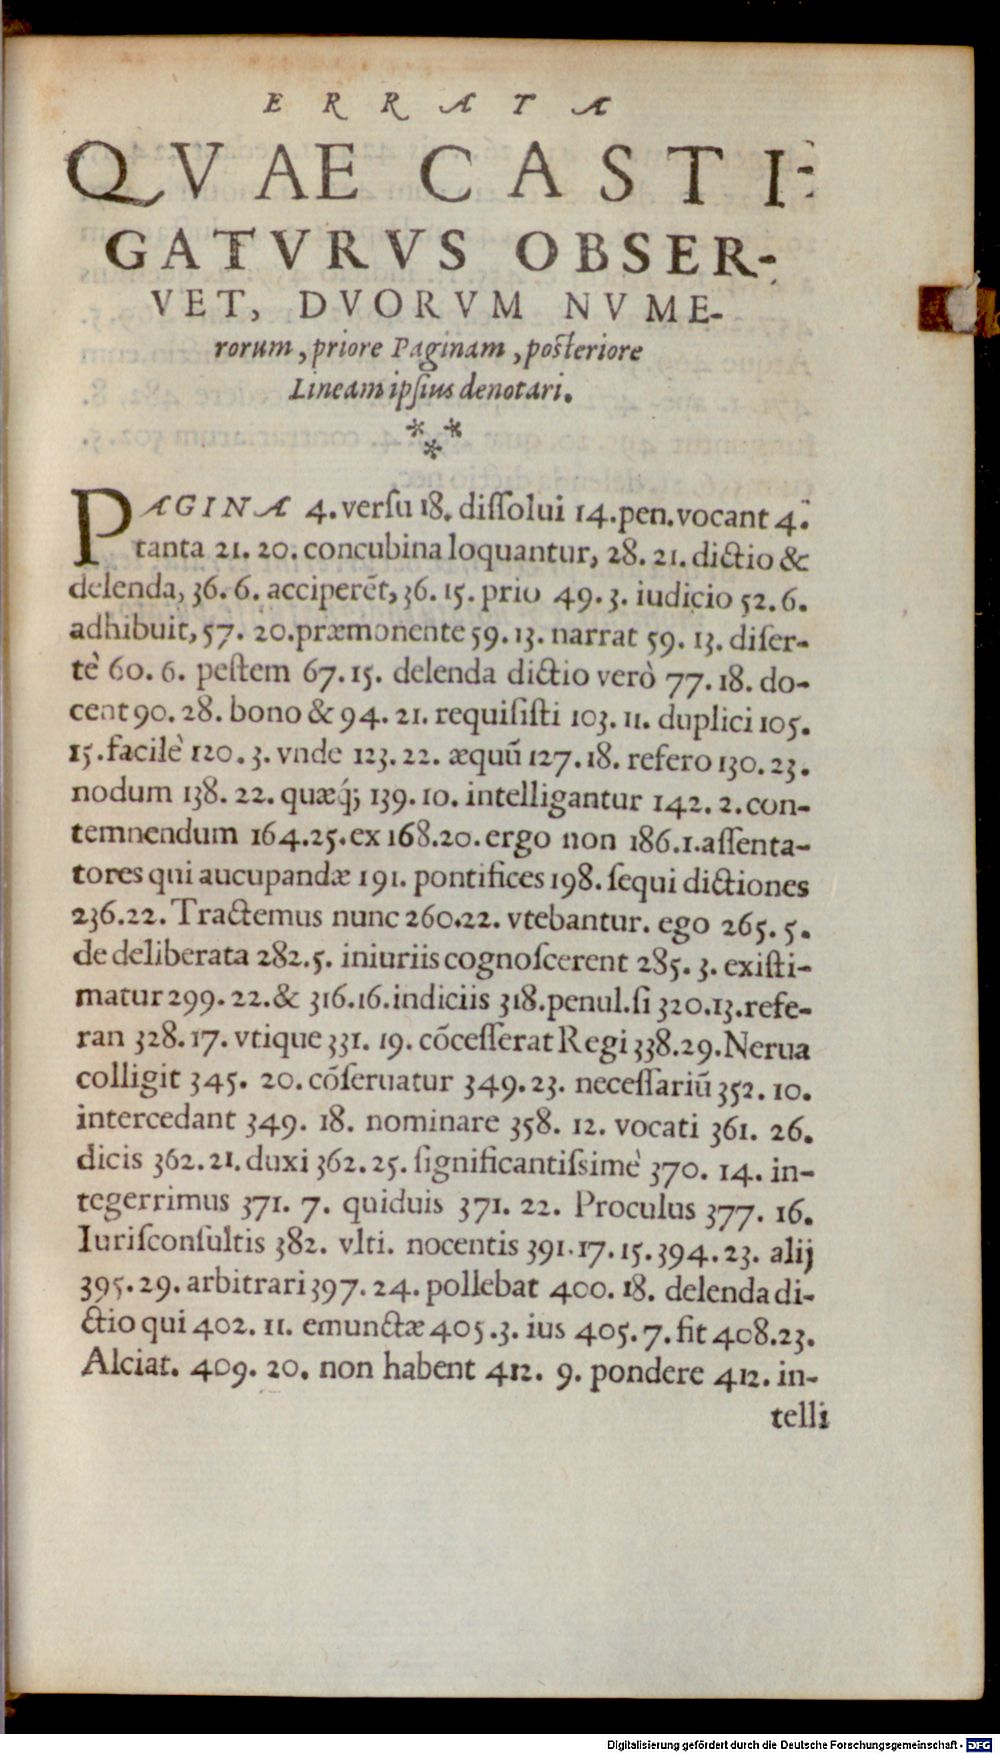 ERRATA
QVAE CASTI-
GATVRVS OBSER-
VET, DVORVM NVME-
rorum, priore Paginam, posteriore
Lineam ipſius denotari.
***
PAGINA 4. verſu 18. diſſolui 14. pen. vocant 4.
tanta 21. 20. concubina loquantur, 28. 21. dictio &
delenda, 36. 6. acciperẽt, 36. 15. prio 49. 3. iudicio 52. 6.
adhibuit, 57. 20. præmonente 59. 13. narrat 59. 13. diſer-
tè 60. 6. peſtem 67. 15. delenda dictio verò 77. 18. do-
cent 90. 28. bono & 94. 21. requiſiſti 103. 11. duplici 105.
15. facilè 120. 3. vnde 123. 22. æquũ 127. 18. refero 130. 23.
nodum 138. 22. quæq́; 139. 10. intelligantur 142. 2. con-
temnendum 164. 25. ex 168. 20. ergo non 186. 1. aſſenta-
tores qui aucupandæ 191. pontifices 198. ſequi dictiones
236. 22. Tractemus nunc 260. 22. vtebantur. ego 265. 5.
de deliberata 282. 5. iniuriis cognoſcerent 285. 3. exiſti-
matur 299. 22. & 316. 16. indiciis 318. penul. ſi 320. 13. refe-
ran 328. 17. vtique 331. 19. cõceſſerat Regi 338. 29. Nerua
colligit 345. 20. cõſeruatur 349. 23. neceſſariũ 352. 10.
intercedant 349. 18. nominare 358. 12. vocati 361. 26.
dicis 362. 21. duxi 362. 25. ſignificantiſsimè 370. 14. in-
tegerrimus 371. 7. quiduis 371. 22. Proculus 377. 16.
Iuriſconſultis 382. vlti. nocentis 391. 17. 15. 394. 23. alij
395. 29. arbitrari 397. 24. pollebat 400. 18. delenda di-
ctio qui 402. 11. emunctæ 405. 3. ius 405. 7. fit 408. 23.
Alciat. 409. 20. non habent 412. 9. pondere 412. in-
telli
Digitalisierung gefördert durch die Deutsche Forschungsgemeinschaft - DFG